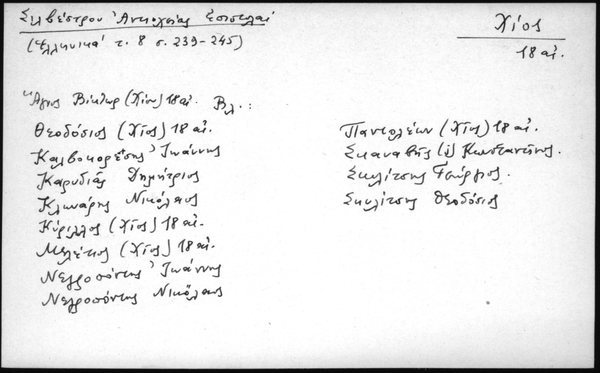 Σιλβέστρου Ἀντιοχείας Ἐπιστολαί
(Ἑλληνικά τ. 8 σ. 239-245)
Χίος
18 αἰ.
Ἅγιος Βίκτωρ (Χίου) 18 αἰ. Βλ.:
Θεοδόσιος (Χίος) 18 αἰ.
Καλβοκορέσης Ἰωάννης
Καρυδιάς Δημήτριος
Νικόλαος
Κύριλλος (Χίος) 18 αἰ.
Μελέτιος (Χίος) 18 αἰ.
Νεγροπόντης Ἰωάννης
Νεγροπόντης Νικόλαος
Πανταλέων (Χίος) 18 αἰ.
Σκαναβής (ἱ) Κωνσταντῖνος.
Σκυλίτσης Γεώργιος.
Σκυλίτσης Θεοδόσιος